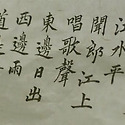 江水平
聞郎江上
唱歌聲
東邊日出
西邊雨
道